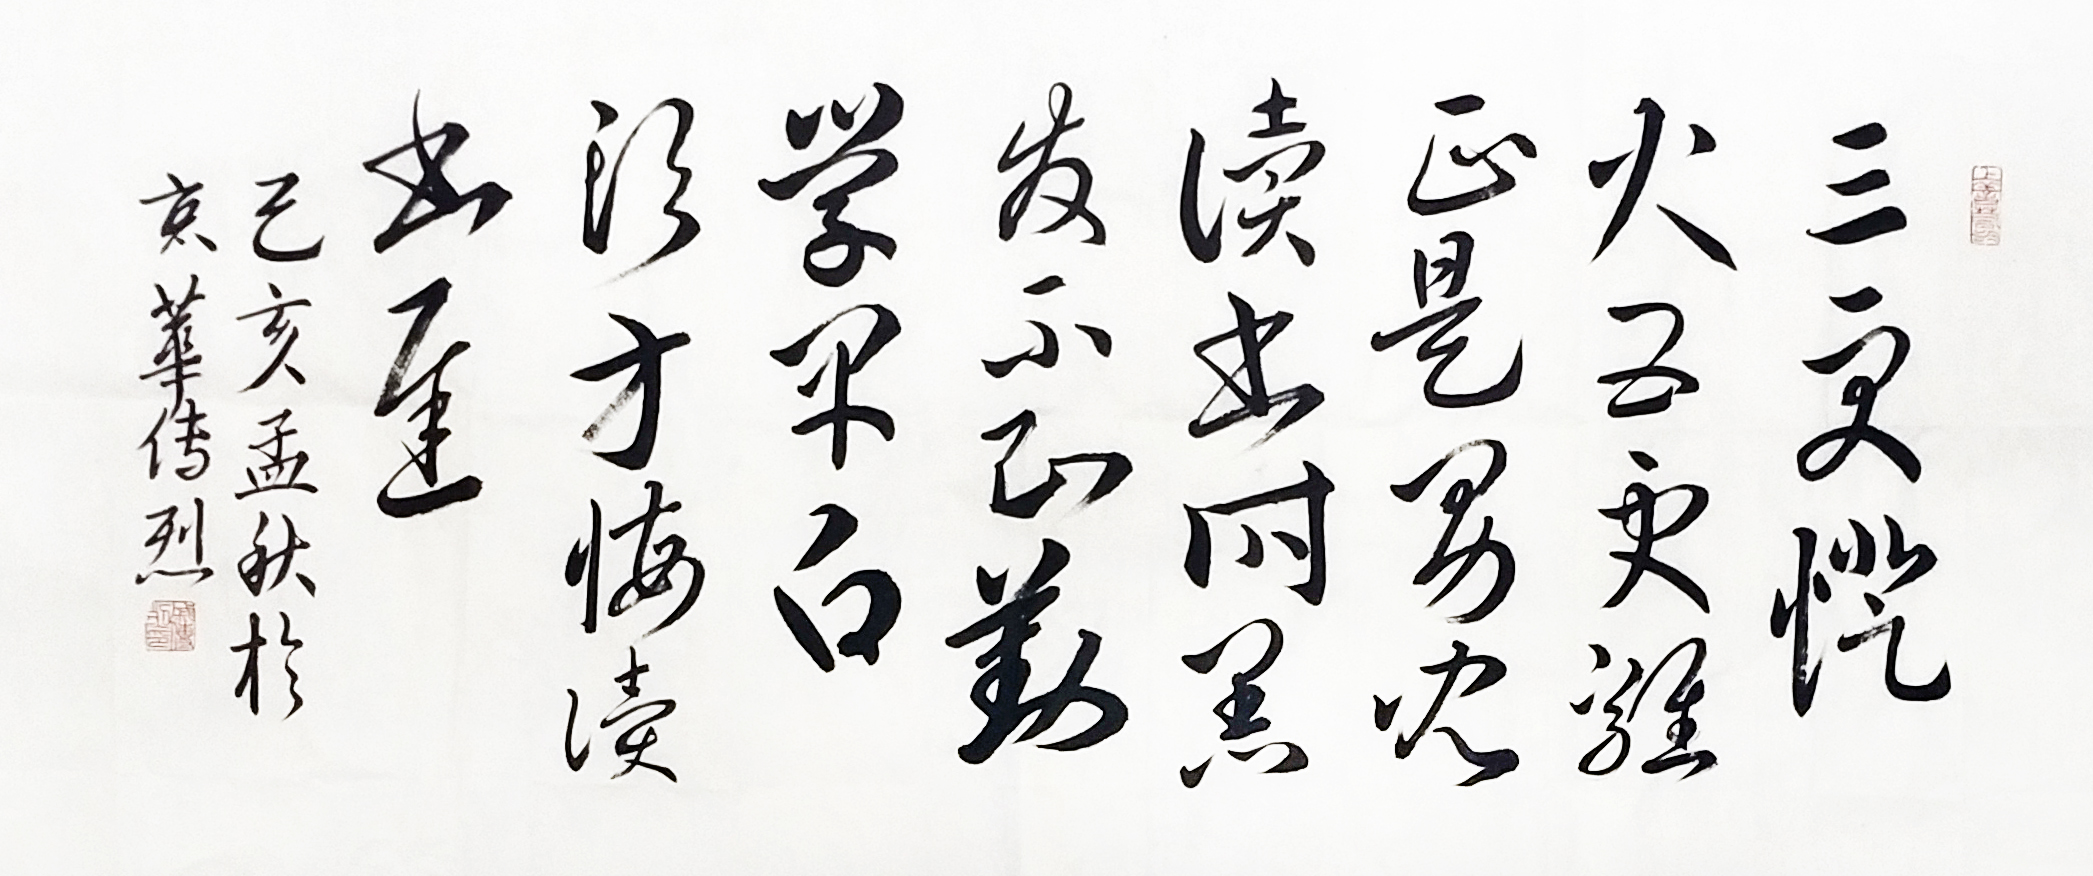 三更燈
火五更雞
正是男兒
读书时黑
发不知勤
学早白
頭方悔读
书遲
己亥孟秋於
京華传烈